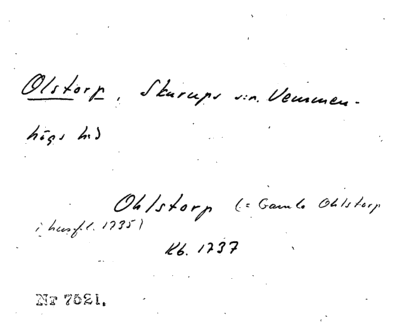 Olstorp, Skurups s:n. Vemmen-
högs hd
Ohlstorp (= Gamla Ohlstorp
i husfl. 1735)
Kb. 1737
Nr 7521.